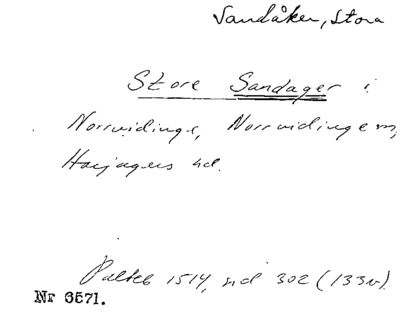 Sandåker, Stora
Store Sandager i
Norrvidinge, Norrvidinge sn,
Harjagers hd.
Palteb 1514, sid 302 (133v)
Nr 6571.